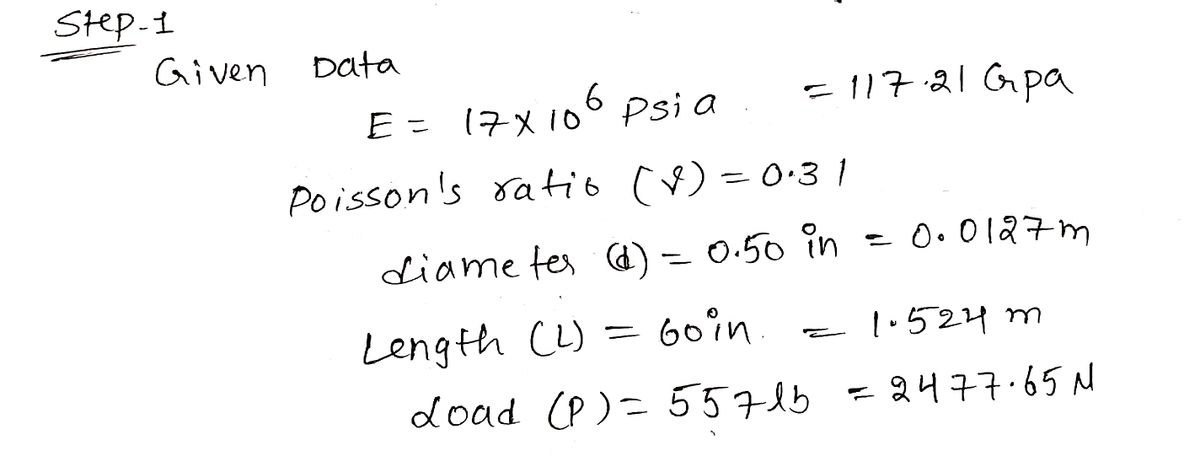 Step-1
Given Data
E = 17 X 10⁶ Psi a = 117.21 Gpa
Poisson's ratio (ν) = 0.31
diameter (d) = 0.50 in = 0.0127m
Length (L) = 60in. = 1.524 m
Load (P) = 557lb = 2477.65 N